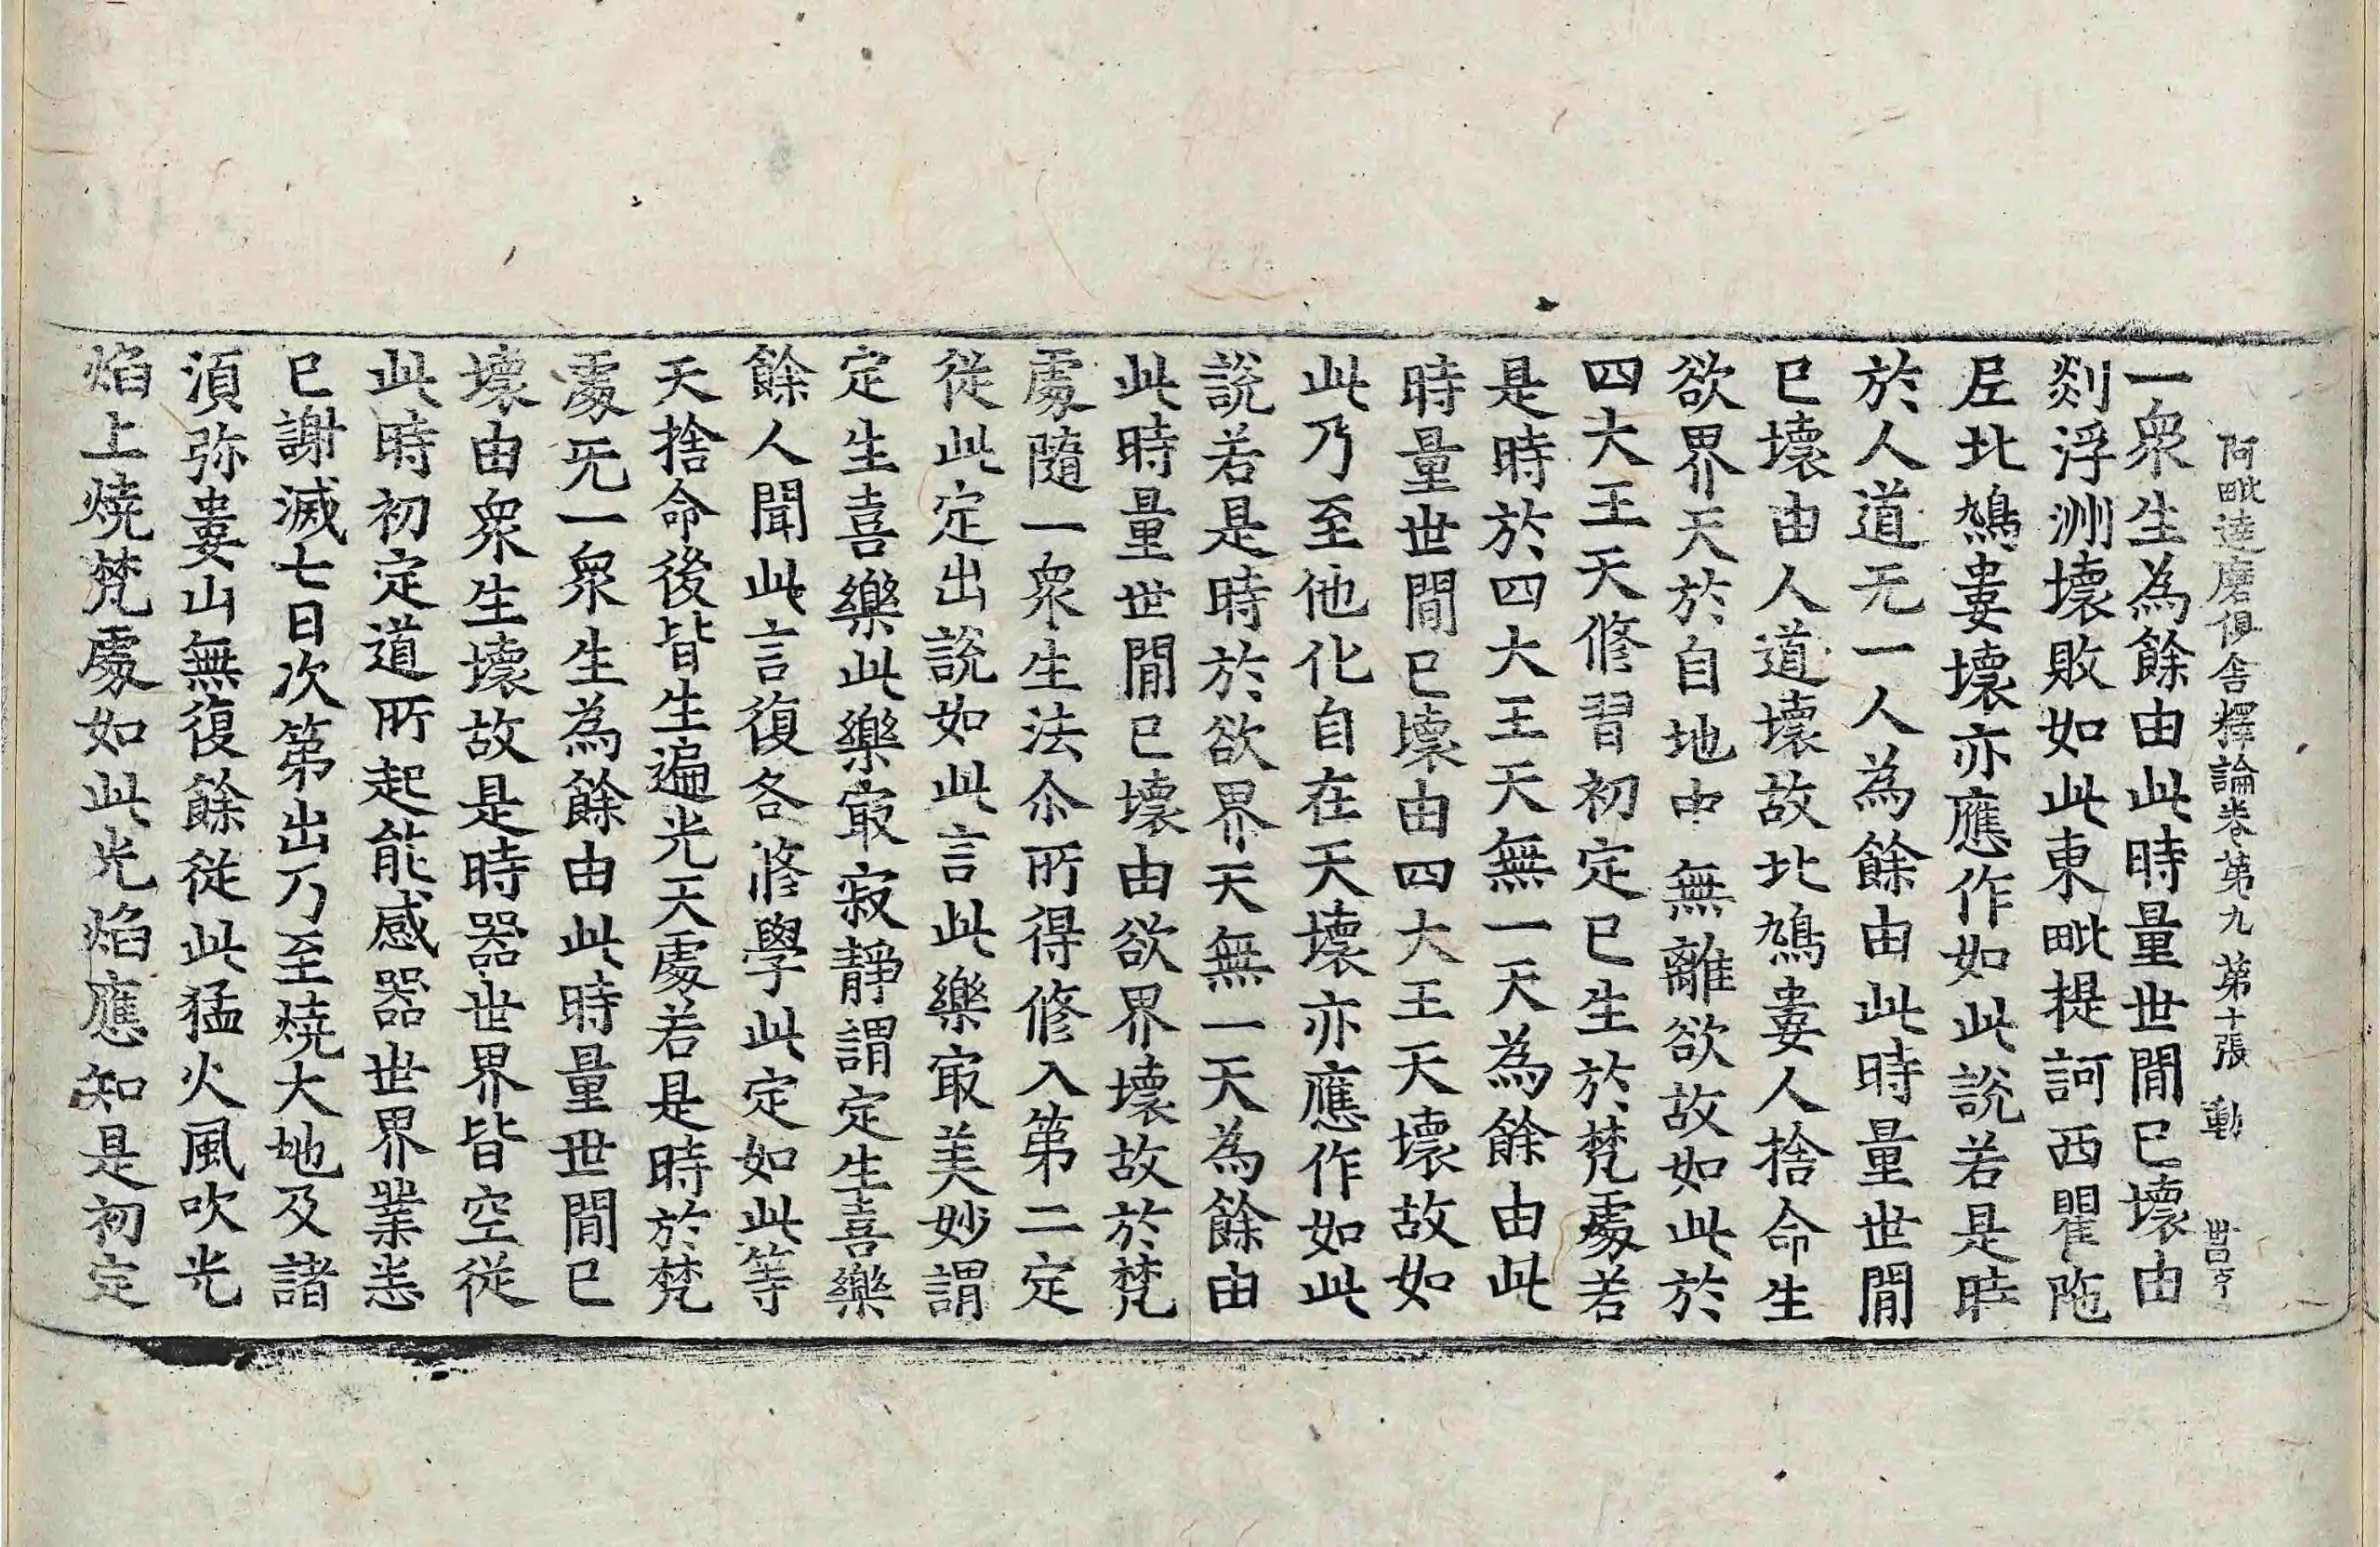 阿毗達磨俱舍釋論卷第九 第十張 動
一衆生為餘由此時量世間已壞由
剡浮洲壞敗如此東毗提訶西瞿陁
𡰱北鳩婁壞亦應作如此說若是時
於人道无一人為餘由此時量世間
已壞由人道壞故北鳩婁人捨命生
欲界天於自地中無離欲故如此於
四大王天修習初定已生於梵處若
是時於四大王天無一天為餘由此
時量世間已壞由四大王天壞故如
此乃至他化自在天壞亦應作如此
說若是時於欲界天無一天為餘由
此時量世間已壞由欲界壞故於梵
處隨一衆生法尒所得修入第二定
從此定出說如此言此樂㝡美妙謂
定生喜樂此樂㝡寂靜謂定生喜樂
餘人聞此言復各修學此定如此等
天捨命後皆生遍光天處若是時於梵
處无一衆生為餘由此時量世間已
壞由衆生壞故是時器世界皆空從
此時初定道所起能感器世界業悉
已謝滅七日次第出乃至燒大地及諸
湏弥婁山無復餘從此猛火風吹光
焰上燒梵處如此光焰應知是初定